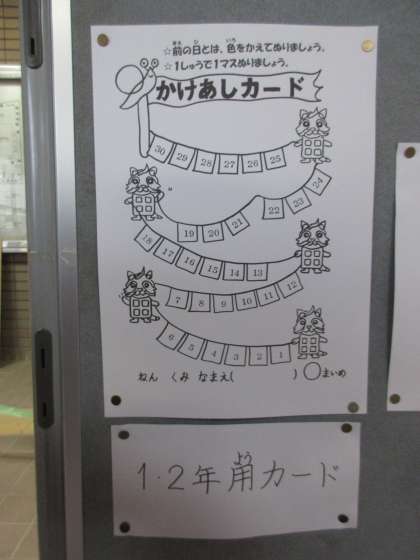 ☆前の日とは、色をかえてぬりましょう。
☆1しゅうで1マスぬりましょう。
かけあしカード
30 29 28 27 26 25
24
23
22
21
19 20
18 17 16 15 14 13
12
11
7 8 9 10
6 5 4 3 2 1
ねん くみ なまえ( ) ○まいめ
1.2年用カード